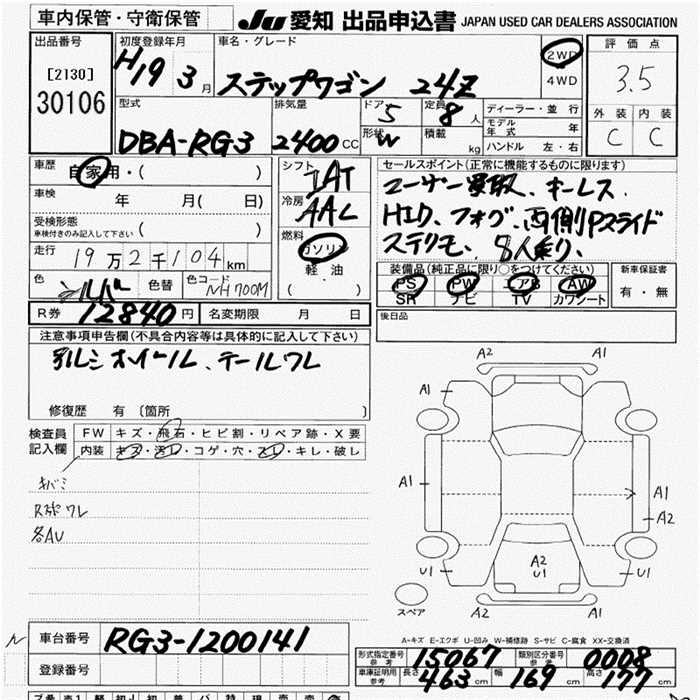 車内保管・守衛保管
JU 愛知 出品申込書 JAPAN USED CAR DEALERS ASSOCIATION
出品番号
[2130]
30106
初度登録年月
H19 3月
車名・グレード
ステップワゴン 24Z
2WD
4WD
評価点
3.5
外装 内装
C C
型式
DBA-RG3
排気量
2400 CC
ドア
5
形状
W
定員
8人
積載
kg
ディーラー・並行
モデル年式 年
ハンドル 左・右
車歴
自家用・( )
車検
年 月( 日)
受検形態
車検付きのみ記入して下さい ( )
走行
19万2千104km
色
シルバー
色替
色コード
NH700M
シフト
IAT
冷房
AAC
燃料
ガソリン
軽油
( ・ )
セールスポイント(正常に機能するものに限ります)
ユーザー買取、キーレス、
HID、フォグ、両側Pスライド
ステリモ、8人乗り、
装備品(純正品に限り○をつけてください)
PS PW エアB AW
SR ナビ TV カワシート
新車保証書
有・無
R券 12840円 名変期限 月 日
後日品
注意事項申告欄(不具合内容等は具体的に記入して下さい)
ホイール、テールワレ
修復歴 有 〔箇所 〕
検査員
記入欄
FW キズ・飛石・ヒビ割・リペア跡・X要
内装 キズ・汚レ・コゲ・穴・スレ・キレ・破レ
キバミ
Rスポワレ
各AU
A2 A1
A1 A1
A1 A1
A2
A2
U1
U1 U1
スペア
A2 A1
A-キズ E-エクボ U-凹み W-補修跡 S-サビ C-腐食 XX-交換済
車台番号 RG3-1200141
登録番号
形式指定番号 参考 15067
類別区分番号 参考 0008
車庫証明用 参考 長さ 463 cm 幅 169 cm 高さ 177 cm